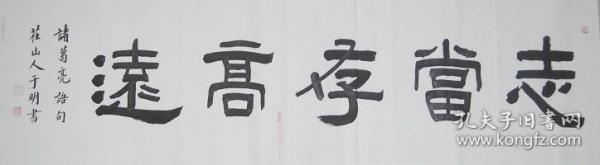 志當存高遠
諸葛亮語句
莊山人于明書
孔夫子旧书网
www.kongfz.com